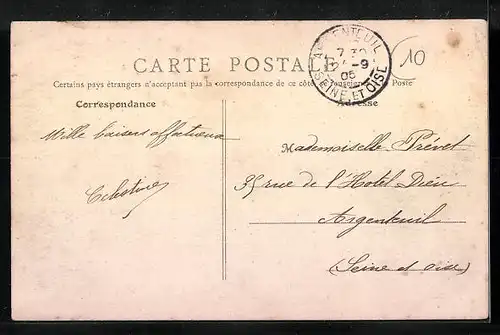 CARTE POSTALE
Certains pays étrangers n'acceptant pas la correspondance de ce côté Poste
Correspondance
Adresse
ARGENTEUIL
7 30
-9
06
SEINE-ET-OISE
10
Mille baisers affectueux
Célestine
Mademoiselle Prévet
35 rue de l'Hotel Dieu
Argenteuil
(Seine et oise)